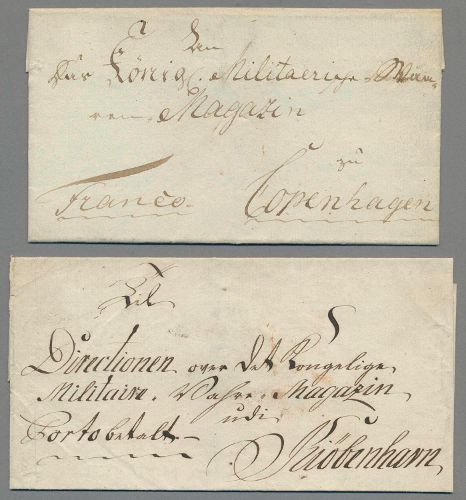 An
Das Königl. Militairische Waa-
ren Magazin
zu
Franco. Copenhagen
Til
Directionen over det Kongelige
Militaire Vahre Magazin
udi
Porto betalt Kiöbenhavn